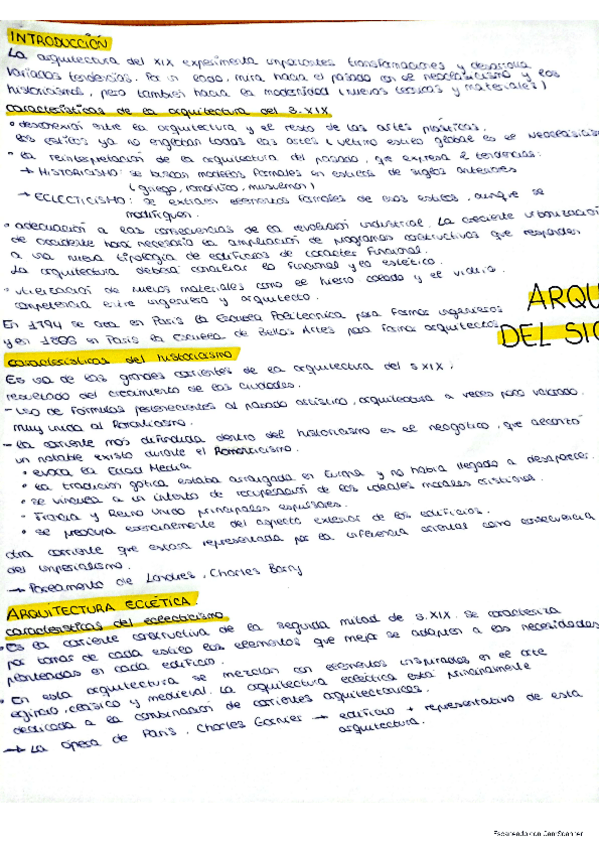 INTRODUCCIÓN
La arquitectura del XIX experimenta importantes transformaciones y desarrolla
variadas tendencias. Por un lado, mira hacia el pasado con el neoclasicismo y los
historicismos, pero también hacia la modernidad (nuevas técnicas y materiales)
características de la arquitectura del S.XIX
• desconexión entre la arquitectura y el resto de las artes plásticas.
los estilos ya no engloban todas las artes (último estilo global es el Neoclasicismo
• la reinterpretación de la arquitectura del pasado, que expresa 2 tendencias:
→ HISTORICISMO: se buscan modelos formales en estilos de siglos anteriores
(griego, románico, musulmán)
→ ECLECTICISMO: se extraen elementos formales de esos estilos, aunque se
modifiquen.
• adecuación a las consecuencias de la revolución industrial. La creciente urbanización
de occidente hará necesario la ampliación de programas constructivos que respondan
a una nueva tipología de edificios de carácter funcional.
La arquitectura deberá conciliar lo funcional y lo estético.
• utilización de nuevos materiales como el hierro colado y el vidrio.
competencia entre ingeniero y arquitecto.
En 1794 se crea en París la Escuela Politécnica para formar ingenieros
y en 1806 en París la Escuela de Bellas Artes para formar arquitectos
ARQU
DEL SIG
características del historicismo
Es una de las grandes corrientes de la arquitectura del S.XIX,
resultado del crecimiento de las ciudades.
- Uso de fórmulas pertenecientes al pasado artístico, arquitectura a veces poco valorada.
Muy unida al Romanticismo.
- La corriente más difundida dentro del historicismo es el neogótico, que alcanzó
un notable éxito durante el Romanticismo.
• evoca la Edad Media
• la tradición gótica estaba arraigada en Europa y no había llegado a desaparecer.
• se vincula a un intento de recuperación de los ideales morales cristianos.
- Francia y Reino Unido principales impulsores.
• se preocupa esencialmente del aspecto exterior de los edificios.
otra corriente que estaba representada por la influencia oriental como consecuencia
del imperialismo.
→ Parlamento de Londres, Charles Barry
ARQUITECTURA ECLÉTICA
características del eclecticismo
• Es la corriente constructiva de la segunda mitad de S.XIX. Se caracteriza
por tomar de cada estilo los elementos que mejor se adapten a las necesidades
planteadas en cada edificio.
• En esta arquitectura se mezclan con elementos inspirados en el arte
egipcio, clásico y medieval. La arquitectura ecléctica está principalmente
dedicada a la combinación de corrientes arquitectónicas.
→ La ópera de París, Charles Garnier → edificio + representativo de esta
arquitectura.
Escaneado con CamScanner